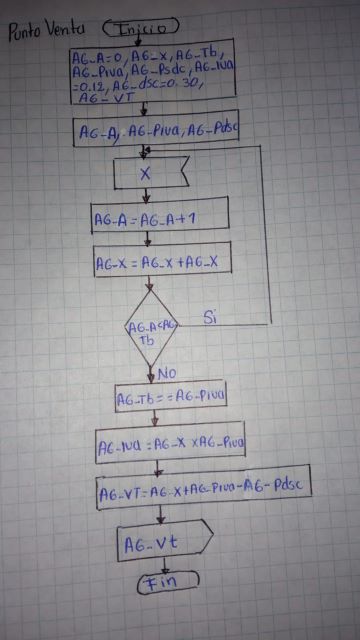 Punto Venta
Inicio
AG-A=0, AG-x, AG-Tb,
AG-Piva, AG-Psdc, AG-Iva
=0.12, AG-dsc=0.30,
AG-VT
AG-A, AG-Piva, AG-Pdsc
X
AG-A=AG-A+1
AG-X=AG-X+AG-X
AG-A<AG
Tb
Si
No
AG-Tb==AG-Piva
AG-Iva=AG-X xAG-Piva
AG-VT=AG-X+AG-Piva-AG-Pdsc
AG-Vt
Fin